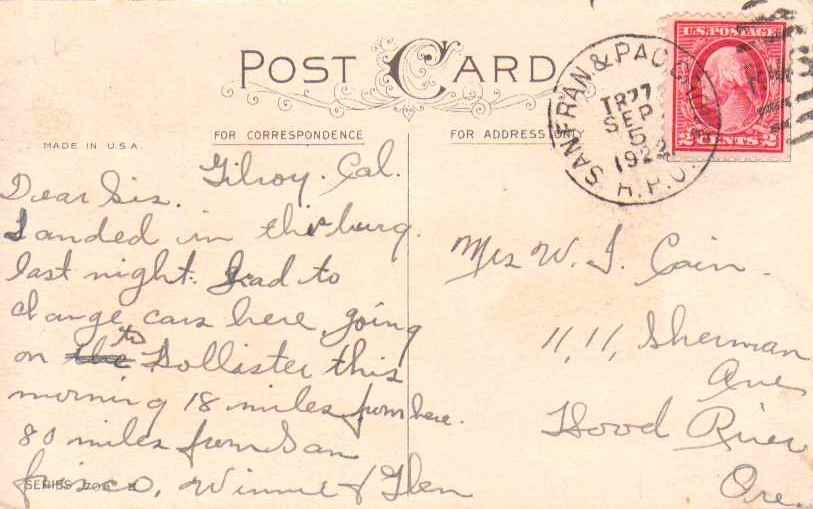 POST CARD
U.S. POSTAGE
2 CENTS 2
SAN FRAN & PAC
TR 77
SEP
5
192
R.P.O.
MADE IN U.S.A.
FOR CORRESPONDENCE
FOR ADDRESS ONLY
Gilroy. Cal.
Dear Sis.
Landed in this burg.
last night. Had to
change cars here, going
on to Hollister this
morning 18 miles from here.
80 miles from San
frisco, Winnie & Glen
SERIES
Mrs W. J. Cain.
11,11, Sherman
Ave
Hood River
Ore.